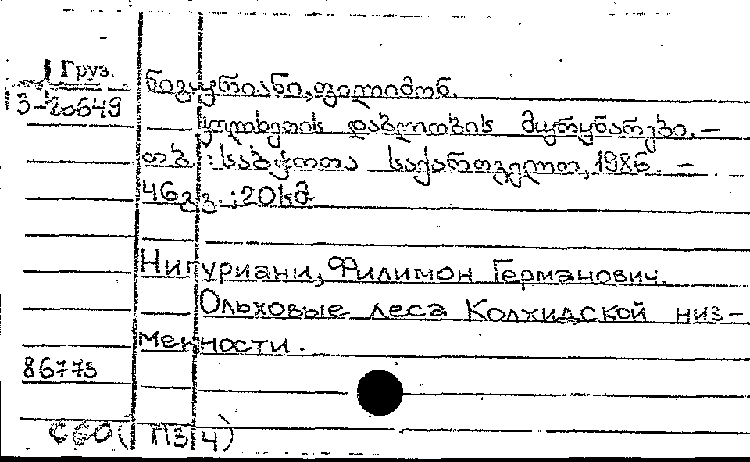 Груз.
3-20649
ნიგურიანი, ფილიმონ.
კოლხეთის დაბლობის მურყნარები. –
თბ. : საბჭოთა საქართველო, 1986. –
46გვ. ; 20სმ
Нигуриани, Филимон Германович.
Ольховые леса Колхидской низ-
менности.
86773
С60( П3 4)